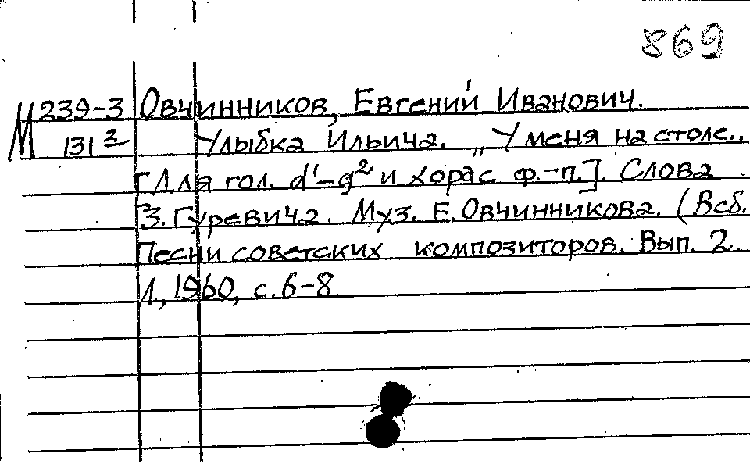 869
М 239-3 Овчинников, Евгений Иванович.
131² Улыбка Ильича. „У меня на столе..
[Для гол. d¹-g² и хора с ф.-п.]. Слова
З. Гуревича. Муз. Е. Овчинникова. (В сб.
Песни советских композиторов. Вып. 2.
Л., 1960, с. 6-8